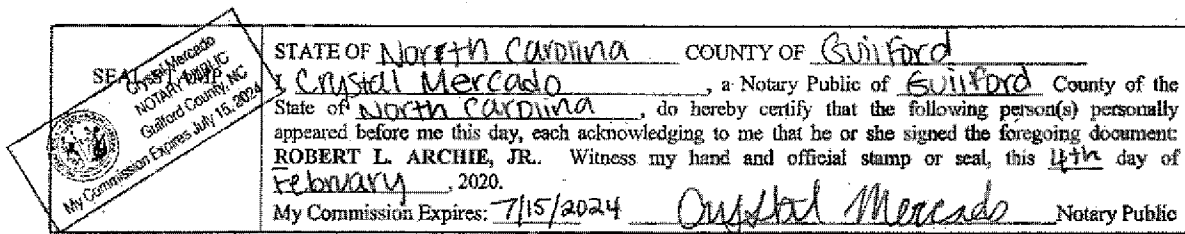 SEAL STAMP
Crystal Mercado
NOTARY PUBLIC
Guilford County, NC
My Commission Expires July 15, 2024
STATE OF North Carolina COUNTY OF Guilford
I Crystal Mercado, a Notary Public of Guilford County of the
State of North Carolina, do hereby certify that the following person(s) personally
appeared before me this day, each acknowledging to me that he or she signed the foregoing document:
ROBERT L. ARCHIE, JR.. Witness my hand and official stamp or seal, this 4th day of
February, 2020.
My Commission Expires: 7/15/2024 Crystal Mercado Notary Public